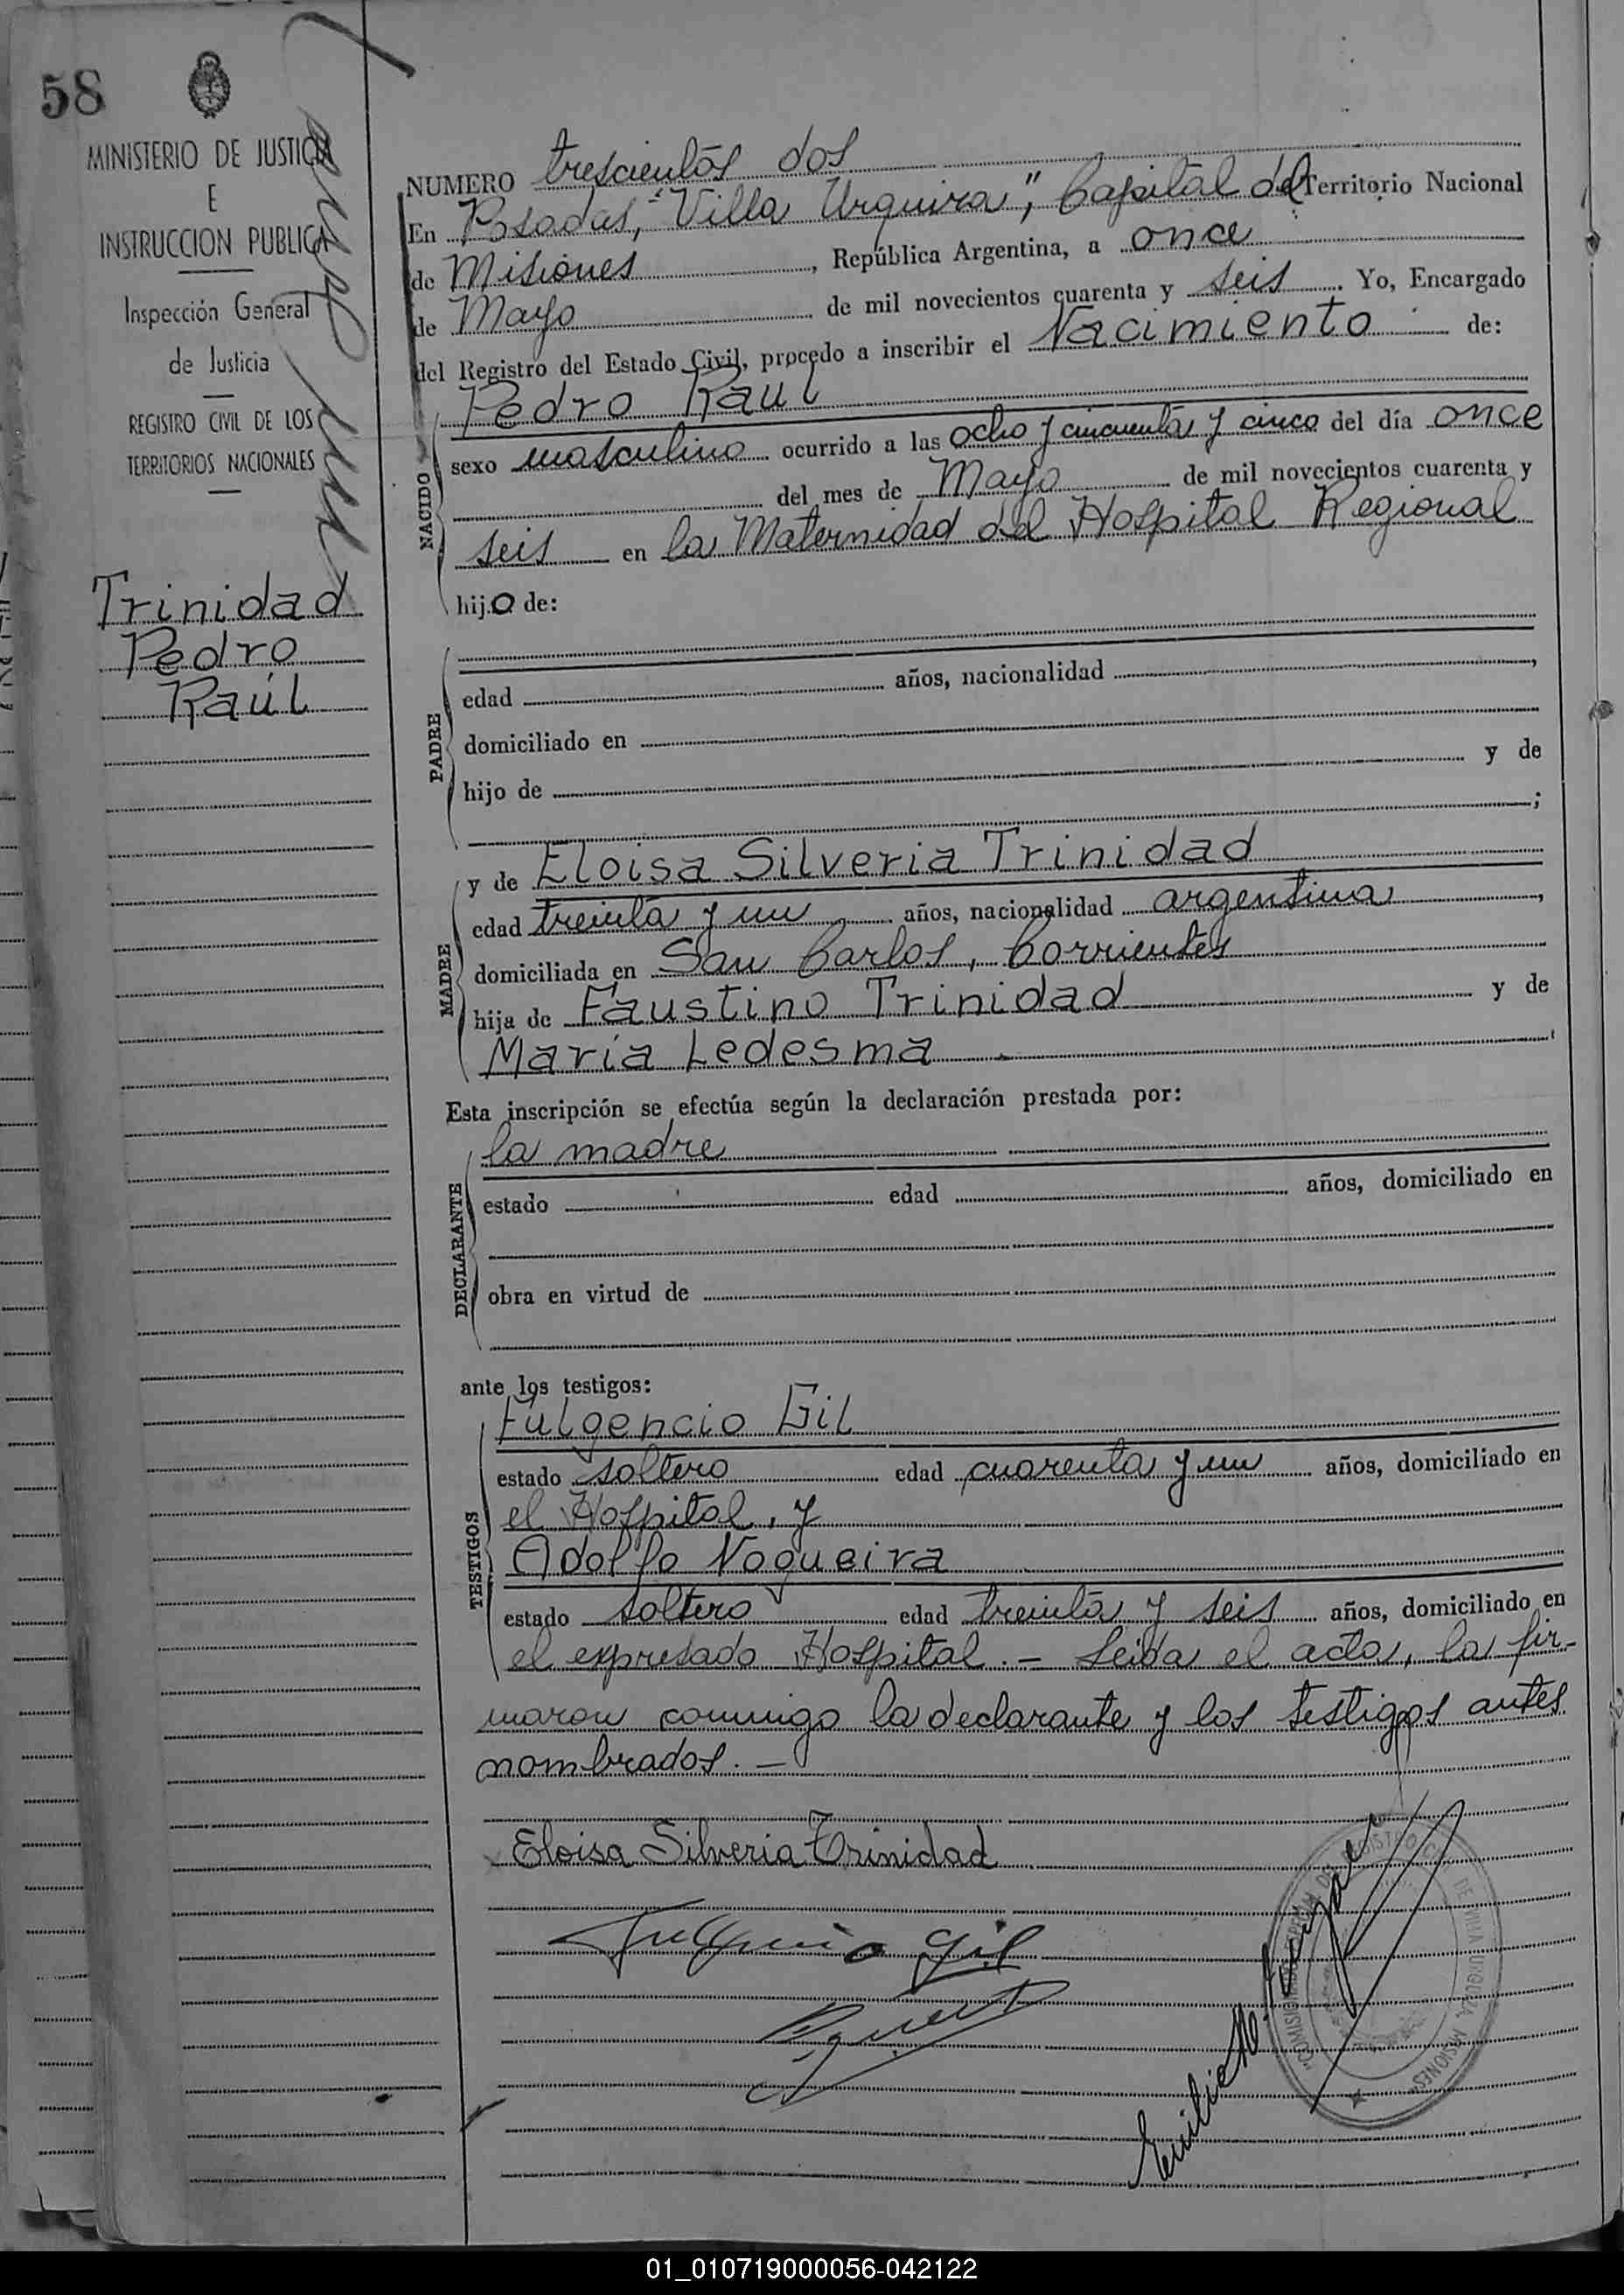 58
MINISTERIO DE JUSTICIA
E
INSTRUCCION PUBLICA
Inspección General
de Justicia
REGISTRO CIVIL DE LOS
TERRITORIOS NACIONALES
Trinidad
Pedro
Raúl
NUMERO trescientos dos
En Posadas, "Villa Urquiza", Capital del Territorio Nacional
de Misiones, República Argentina, a once
de Mayo de mil novecientos cuarenta y seis. Yo, Encargado
del Registro del Estado Civil, procedo a inscribir el Nacimiento de:
NACIDO
Pedro Raúl
sexo masculino ocurrido a las ocho y cincuenta y cinco del día once
del mes de Mayo de mil novecientos cuarenta y
seis en la Maternidad del Hospital Regional
hijo de:
PADRE
edad años, nacionalidad ,
domiciliado en
hijo de y de
;
MADRE
y de Eloisa Silveria Trinidad
edad treinta y un años, nacionalidad argentina ,
domiciliada en San Carlos, Corrientes
hija de Faustino Trinidad y de
María Ledesma
Esta inscripción se efectúa según la declaración prestada por:
DECLARANTE
la madre
estado edad años, domiciliado en
obra en virtud de
ante los testigos:
TESTIGOS
Fulgencio Gil
estado soltero edad cuarenta y un años, domiciliado en
el Hospital, y
Adolfo Nogueira
estado soltero edad treinta y seis años, domiciliado en
el expresado Hospital.- Leida el acta, la fir-
maron conmigo la declarante y los testigos antes
nombrados.-
Eloisa Silveria Trinidad
Fulgencio Gil
Emilio
DE VILLA URQUIZA, MISIONES
01_010719000056-042122